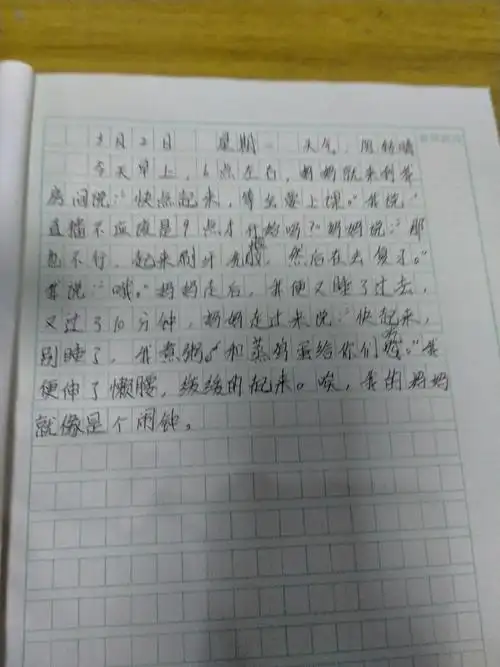 3月2日 星期一 天气：阴转晴
今天早上，6点左右，妈妈就来到我
房间说：“快点起来，等会要上课。”我说：“
直播不应该是9点才开始吗？”妈妈说：“那
也不行，起来刷牙洗脸，然后在去复习。”
我说：“哦。”妈妈走后，我便又睡了过去，
又过了10分钟，妈妈走过来说：“快起来，
别睡了，我煮粥和蒸鸡蛋给你们吃。”我
便伸了懒腰，缓缓的起来。唉，我的妈妈
就像是个闹钟。